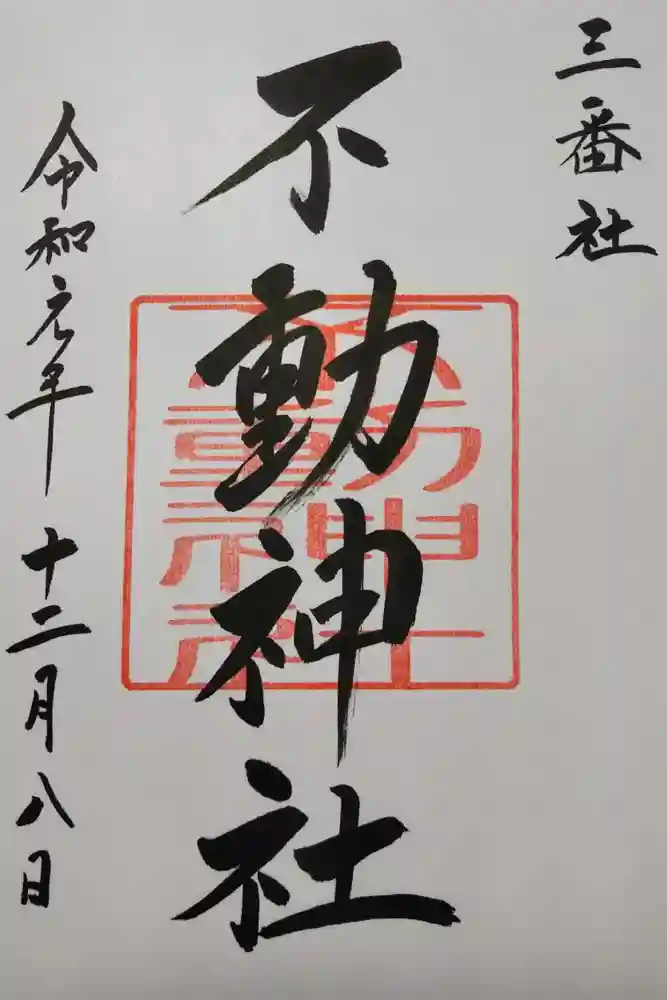 三番社
不動神社
不動神社
令和元年十二月八日